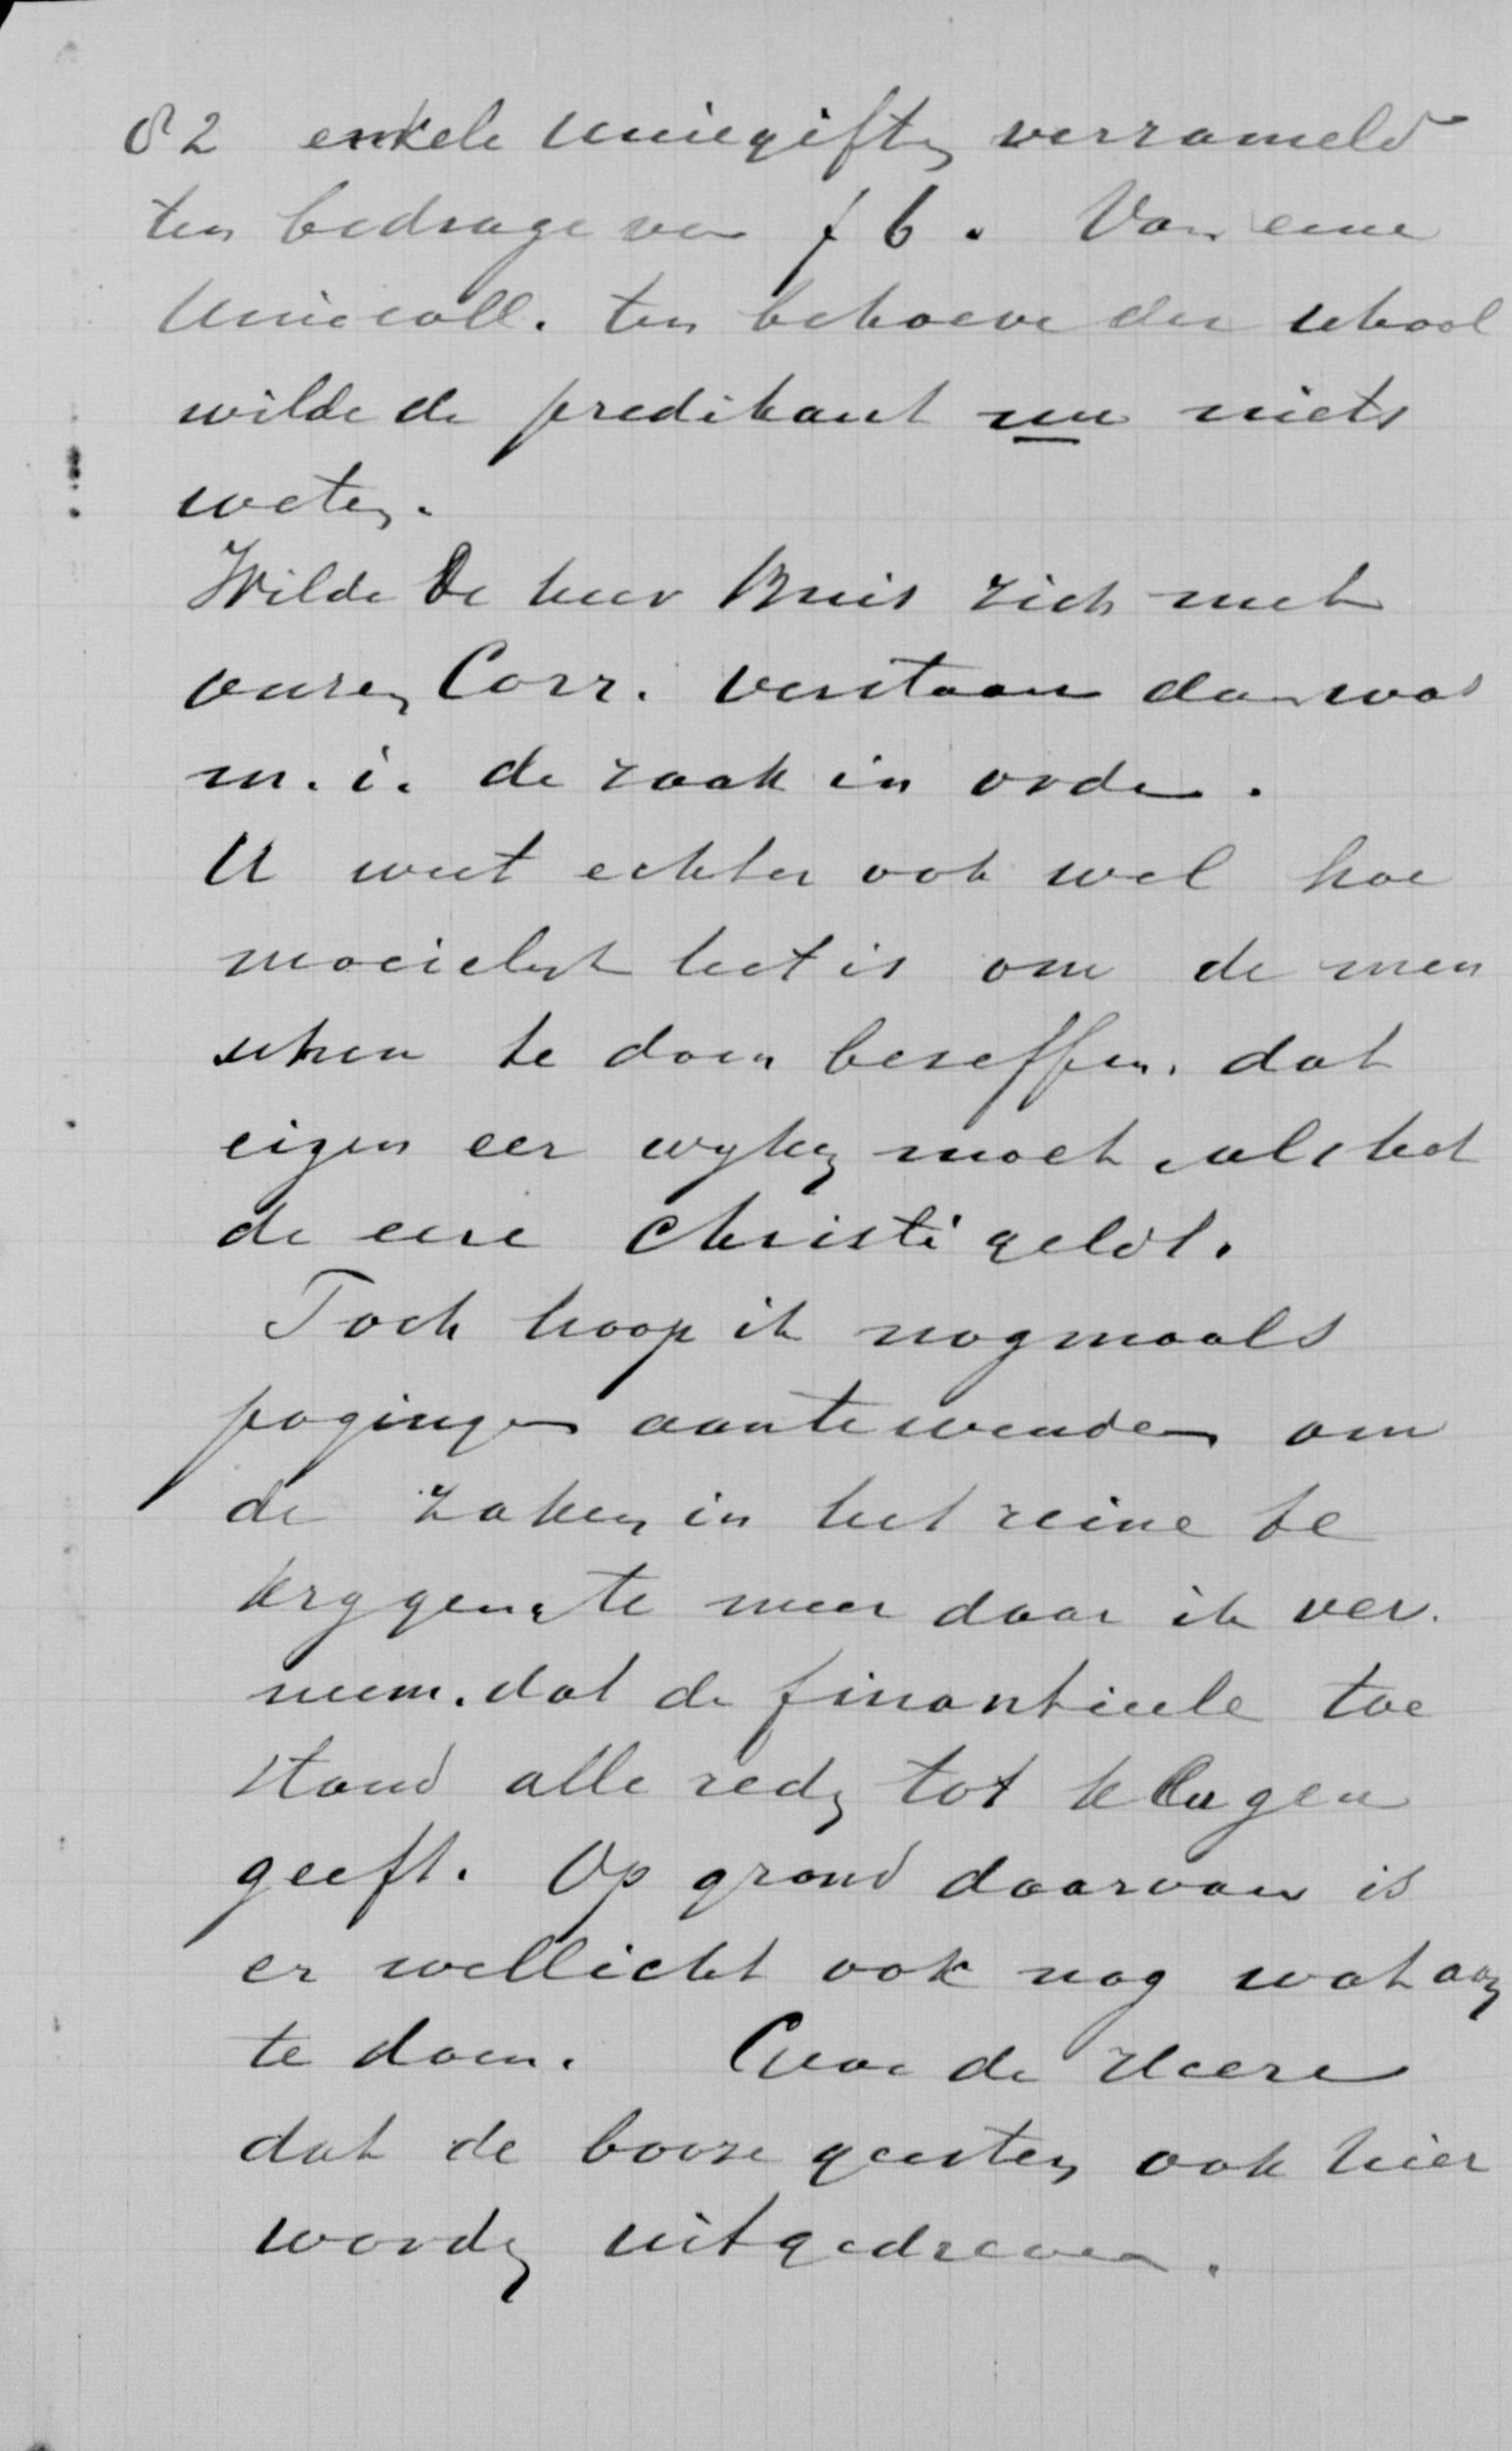 82 enkele Uniegiften verzameld
ten bedrage van f 6. Van eene
Uniecoll. ten behoeve der school
wilde de predikant nu niets
weten.
Wilde De heer Buis zich met
onzen Corr. verstaan dan was
m. i. de zaak in orden.
U weet echter ook wel hoe
moeielyk het is om de men
schen te doen beseffen, dat
eigen eer wyken moet, als het
de eere Christi geldt.
Toch hoop ik nogmaals
pogingen aantewenden om
de zaken in het reine te
krygen, te meer daar ik ver.
neem, dat de finantieele toe
stand alle reden tot klagen
geeft. Op grond daarvan is
er wellicht ook nog wat aan
te doen. Geve de Heere
dat de booze geesten ook hier
worden uitgedreven.